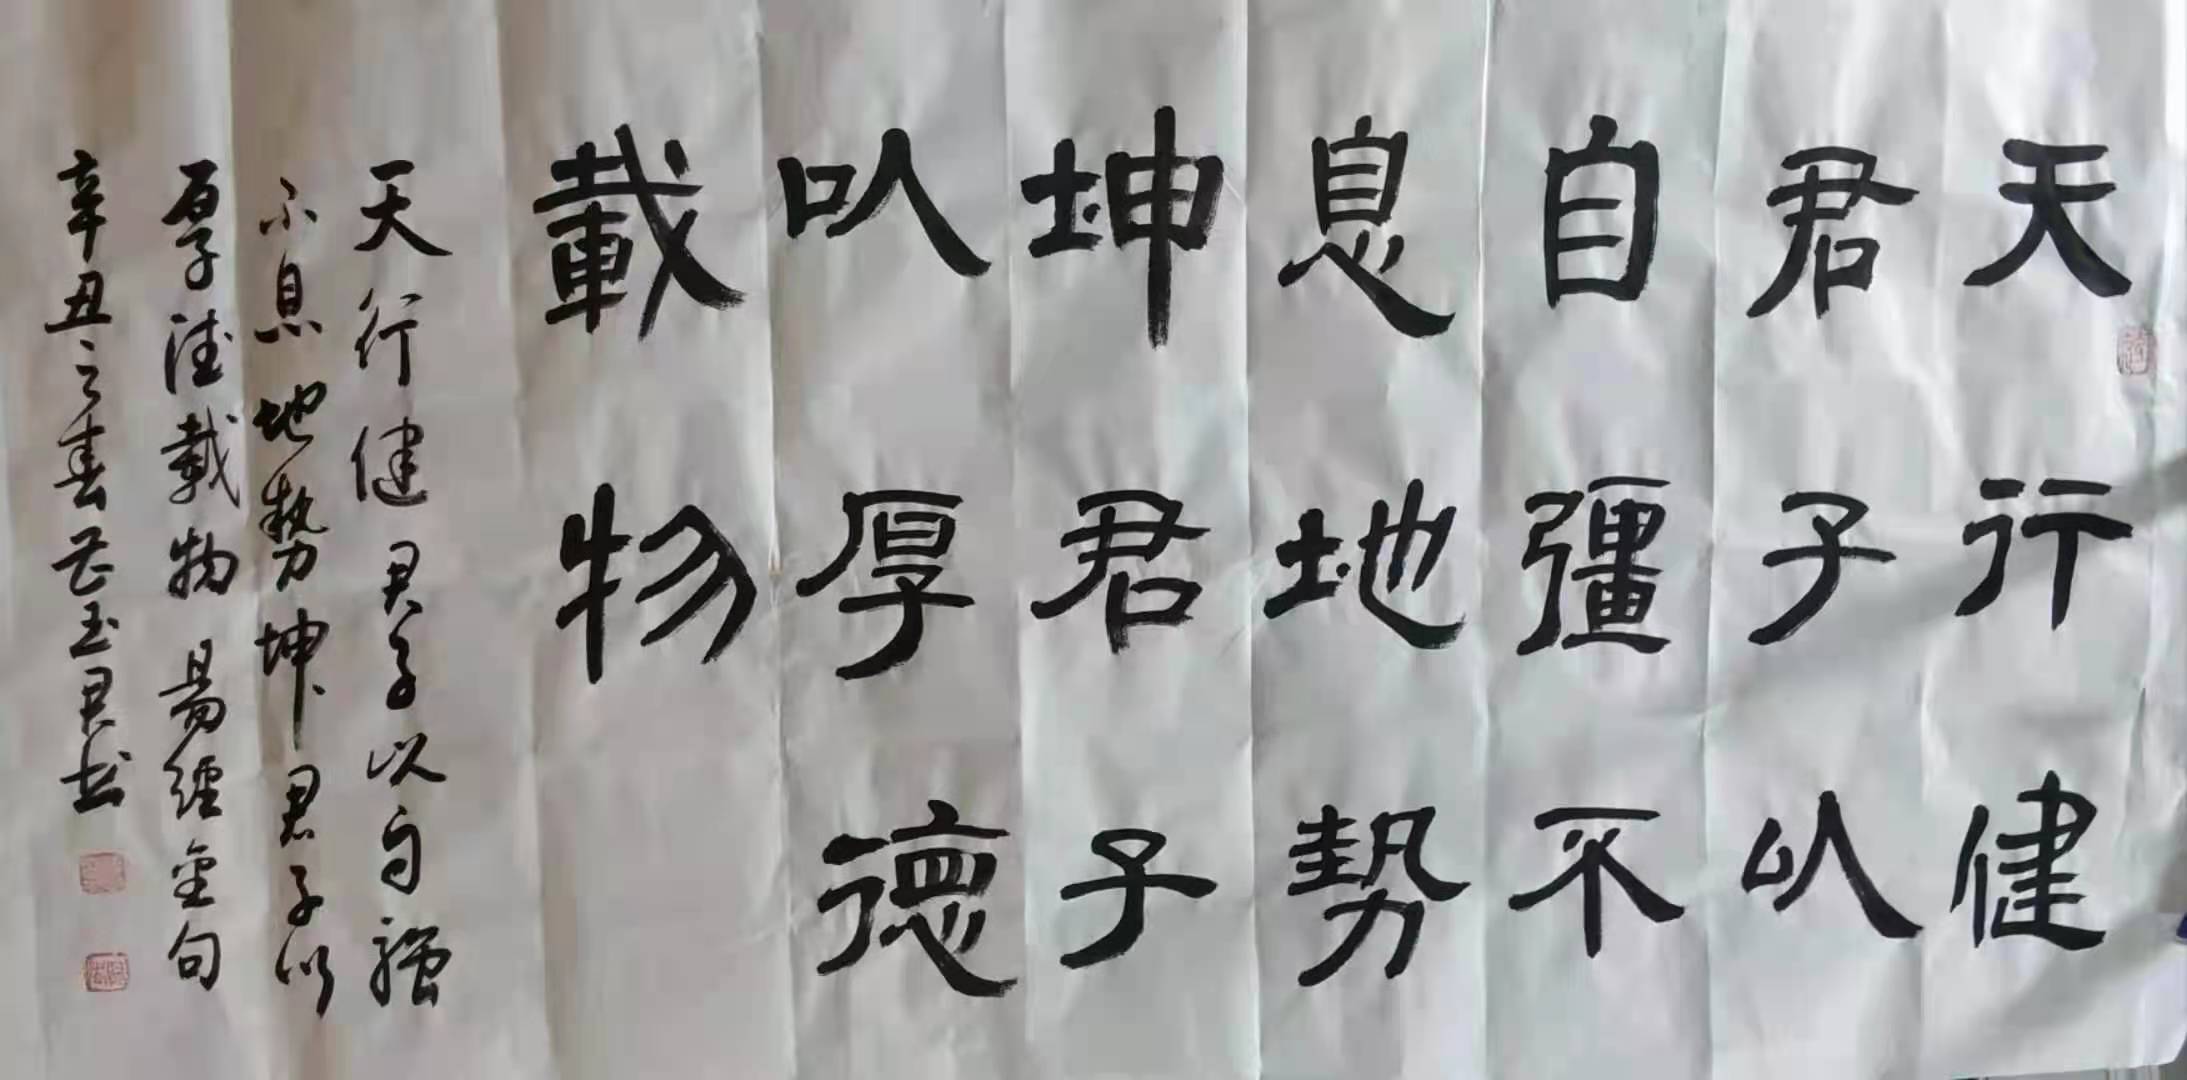 天行健
君子㕥
自彊不
息地勢
坤君子
㕥厚德
載物
天行健君子以自強
不息地勢坤君子以
厚德載物易經金句
辛丑之春玉君书